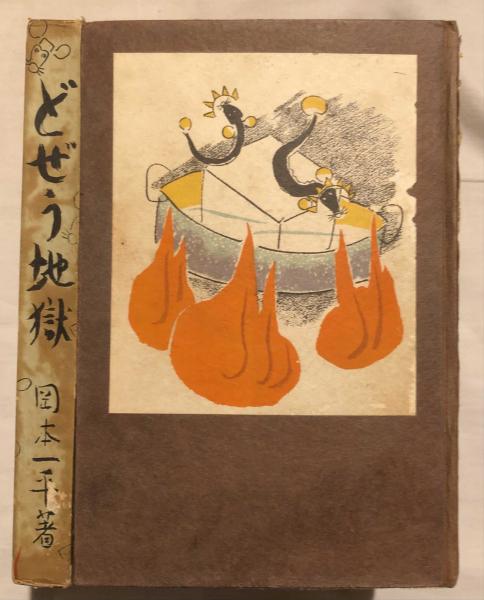 どぜう地獄
岡本一平著